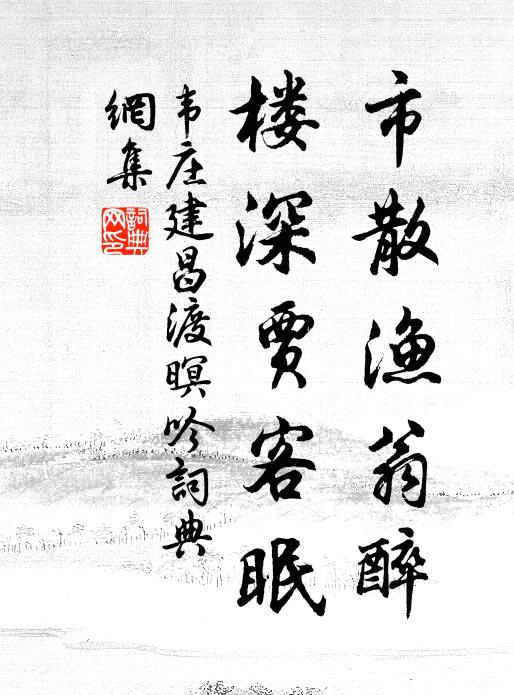 市散渔翁醉
楼深贾客眠
韦庄建昌渡暝吟詞典
網集
詞典
网印